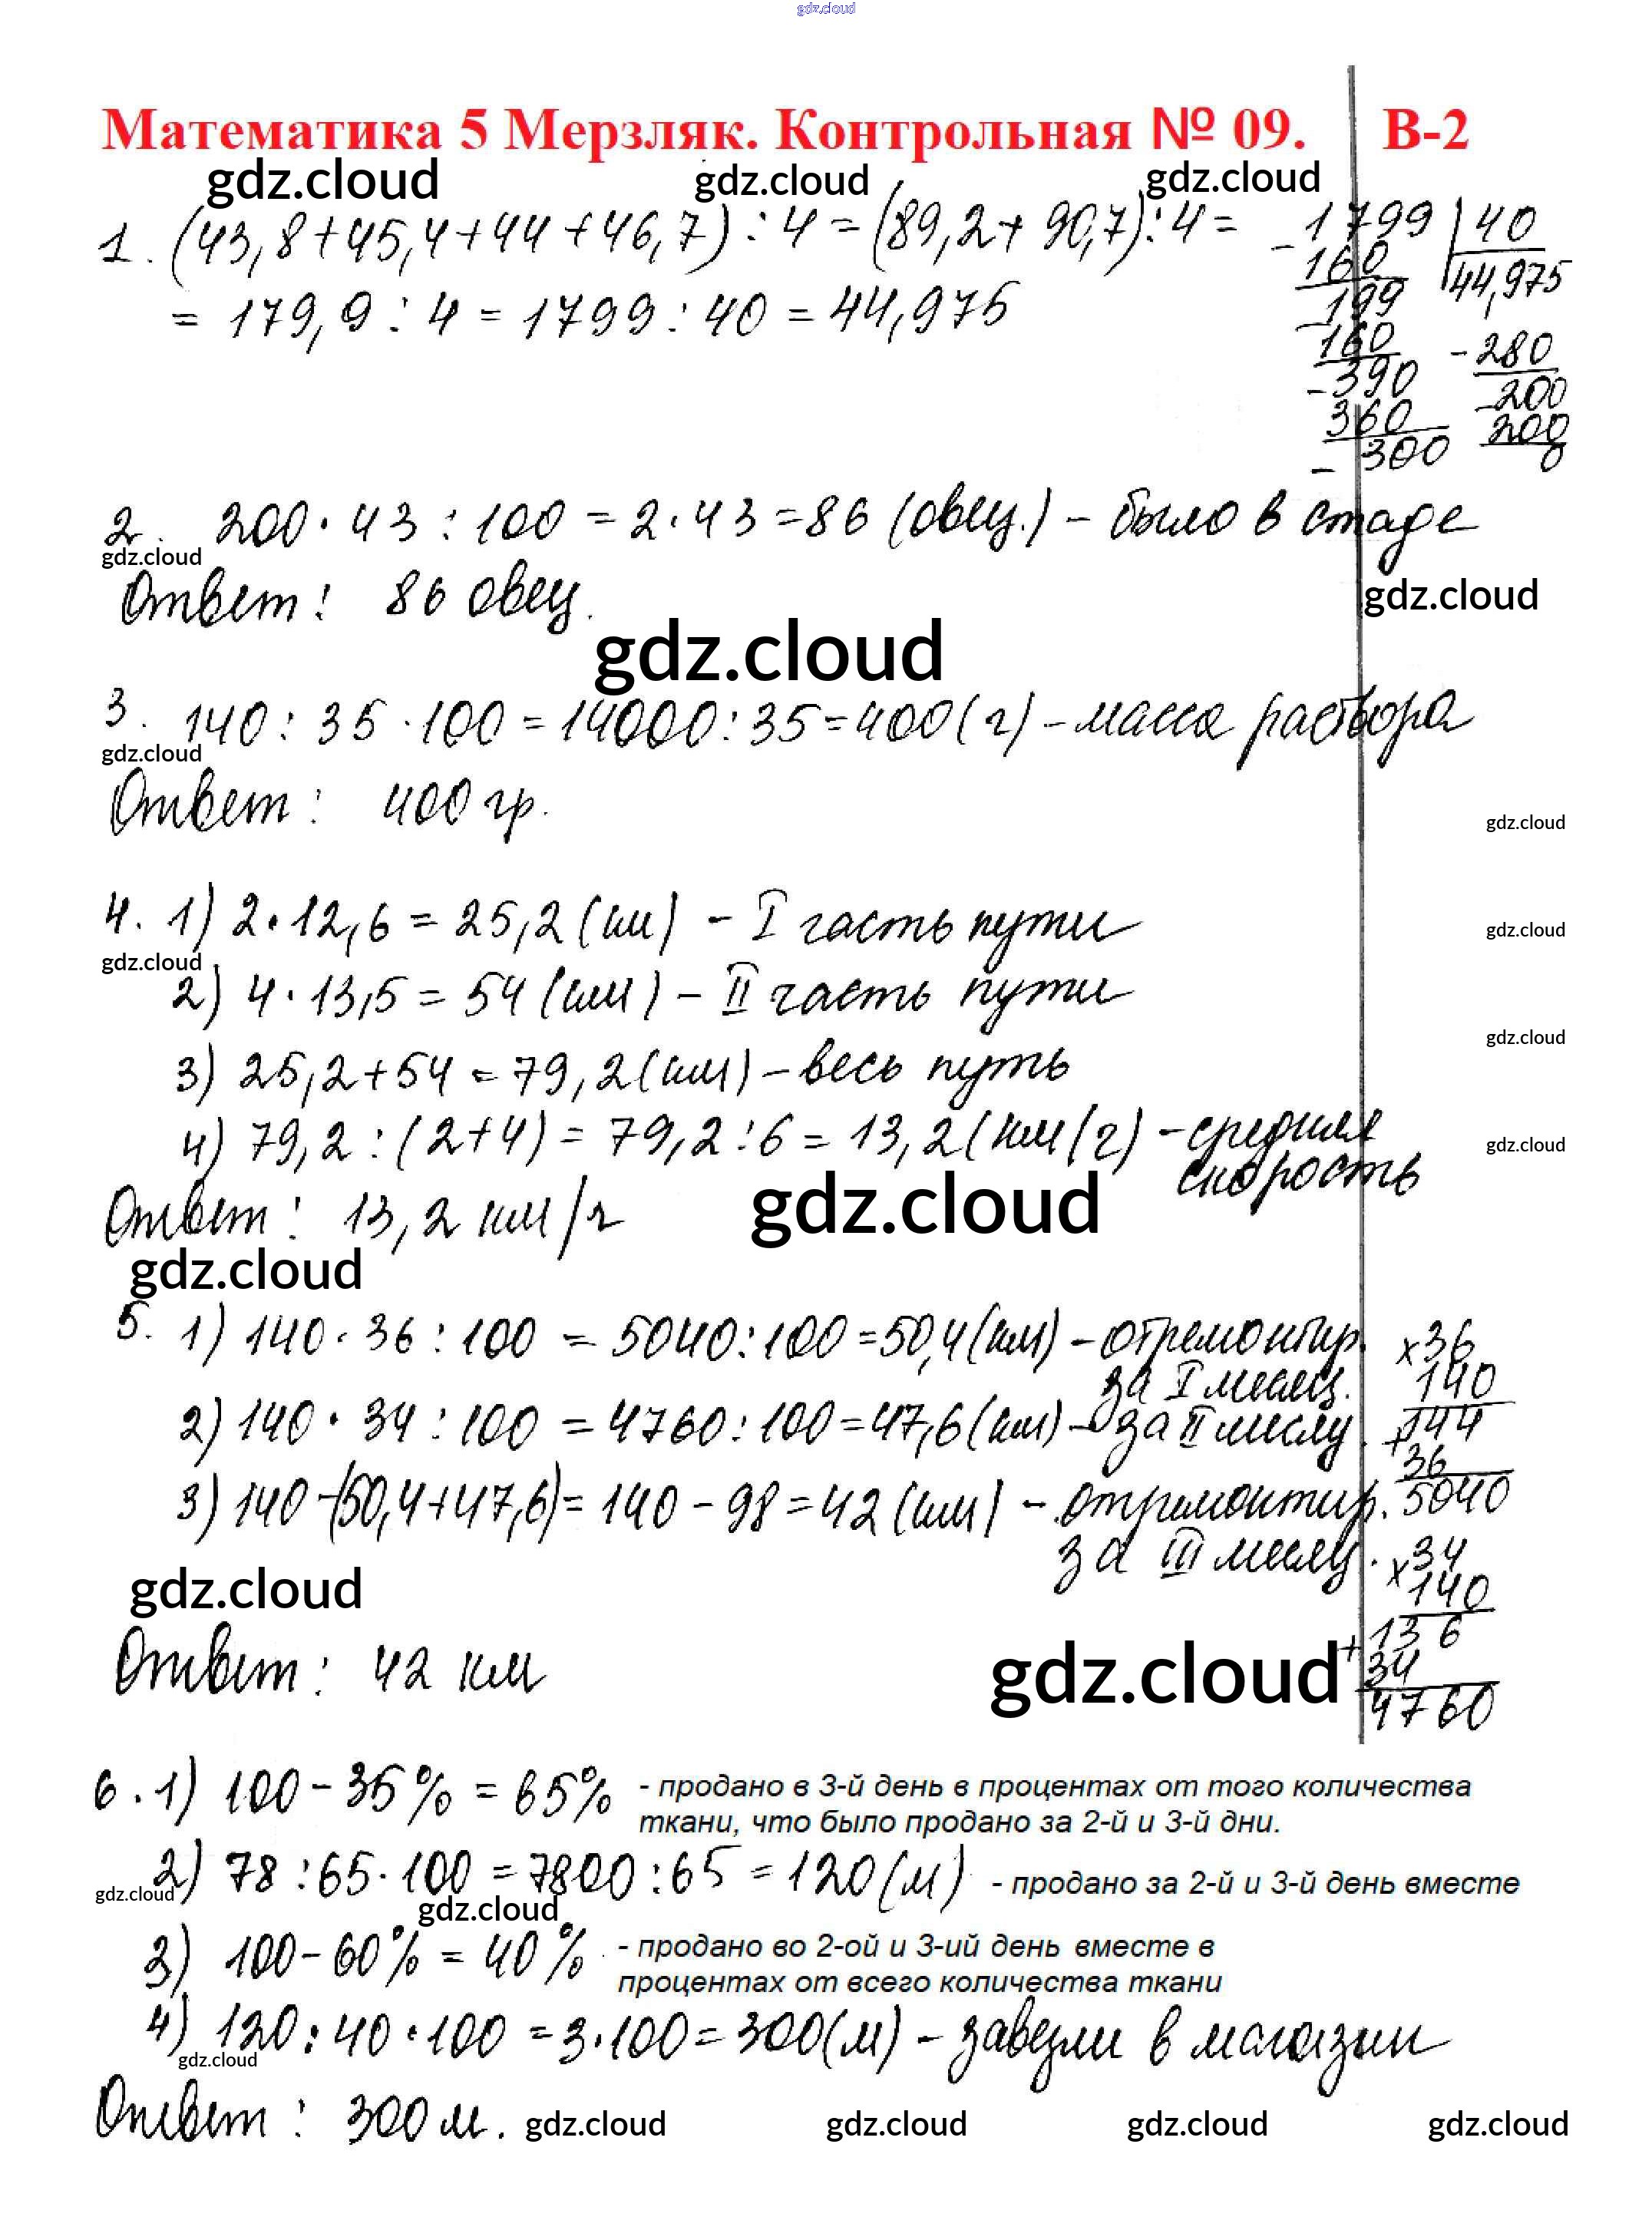 gdz.cloud
Математика 5 Мерзляк. Контрольная № 09. В-2
gdz.cloud gdz.cloud gdz.cloud
1. (43,8+45,4+44+46,7):4=(89,2+90,7):4=
= 179,9:4=1799:40=44,975
-1799 | 40
160 44,975
-199
160 -280
-390 -200
360 200
-300 0
2. 200·43:100=2·43=86 (овец.) - было в стаде
gdz.cloud
Ответ: 86 овец.
gdz.cloud
gdz.cloud
3. 140:35·100=14000:35=400(г) - масса раствора
gdz.cloud
Ответ: 400 гр.
gdz.cloud
4. 1) 2·12,6=25,2(км) - I часть пути
gdz.cloud
gdz.cloud
2) 4·13,5=54(км) - II часть пути
gdz.cloud
3) 25,2+54=79,2(км) - весь путь
4) 79,2:(2+4)=79,2:6=13,2(км/ч) - средняя
скорость
gdz.cloud
Ответ: 13,2 км/ч
gdz.cloud
gdz.cloud
5. 1) 140·36:100=5040:100=50,4(км) - отремонтир.
за I месяц.
2) 140·34:100=4760:100=47,6(км) - за II месяц.
3) 140-(50,4+47,6)=140-98=42(км) - отремонтир.
за III месяц.
x36
140
+144
36
5040
x34
140
+136
34
4760
gdz.cloud
Ответ: 42 км
gdz.cloud
6. 1) 100-35%=65% - продано в 3-й день в процентах от того количества
ткани, что было продано за 2-й и 3-й дни.
2) 78:65·100=7800:65=120(м) - продано за 2-й и 3-й день вместе
gdz.cloud
gdz.cloud
3) 100-60%=40% - продано во 2-ой и 3-ий день вместе в
процентах от всего количества ткани
4) 120:40·100=3·100=300(м) - завезли в магазин
gdz.cloud
Ответ: 300 м. gdz.cloud gdz.cloud gdz.cloud gdz.cloud